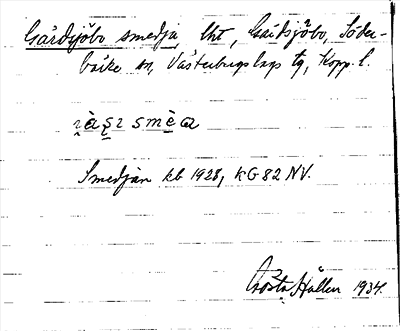 Gårdsjöbo smedja, lht, Gårdsjöbo, Söder-
bärke sn, Västerbergslags tg, Kopp. l.
smèa
Smedjan kb 1928, KG 82 NV.
Gösta Hållen 1934.